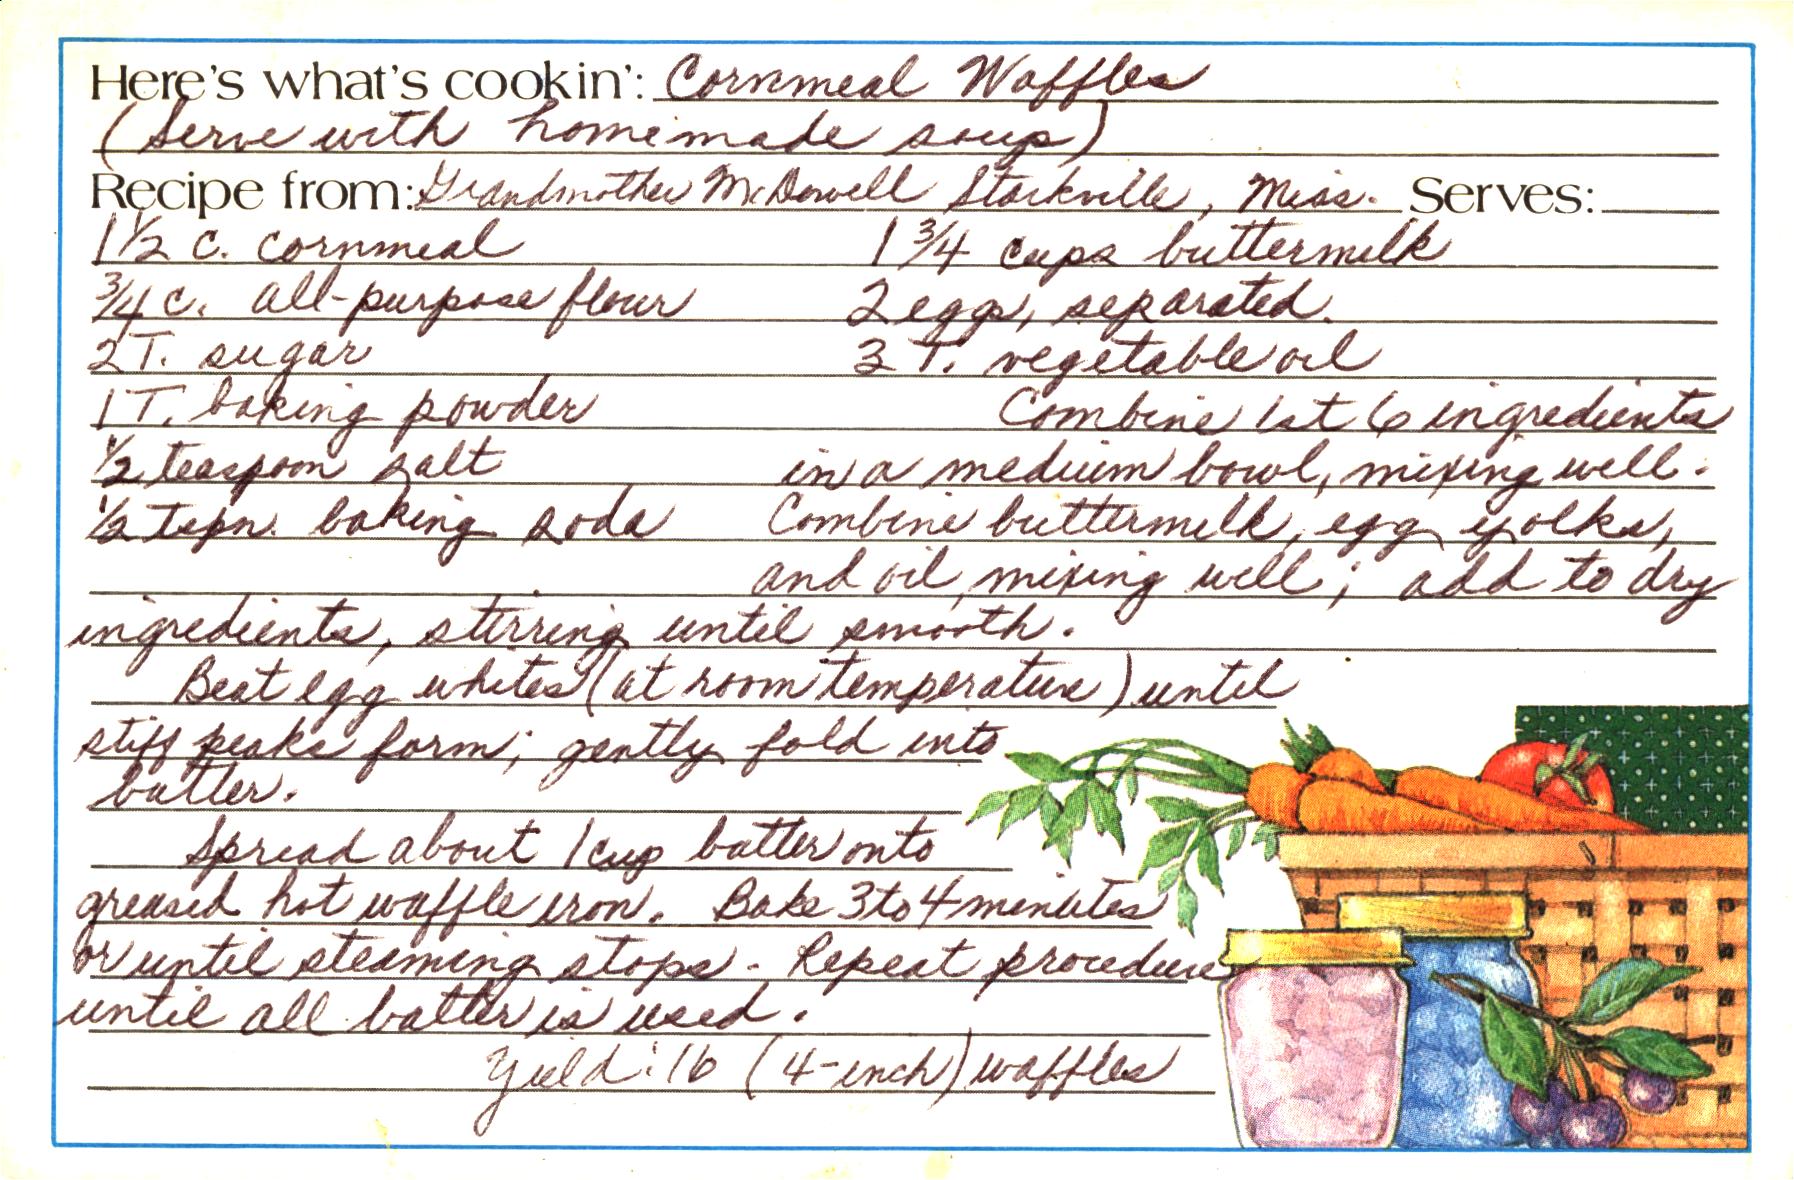 Here's what's cookin': Cornmeal Waffles
(Serve with homemade soup)
Recipe from: Grandmother McDowell Starkville, Miss. Serves:
1 1/2 c. cornmeal
3/4 c. all-purpose flour
2 T. sugar
1 T. baking powder
1/2 teaspoon salt
1/2 tspn. baking soda
1 3/4 cups buttermilk
2 eggs, separated.
3 T. vegetable oil
Combine 1st 6 ingredients
in a medium bowl, mixing well.
Combine buttermilk, egg yolks,
and oil, mixing well; add to dry
ingredients, stirring until smooth.
Beat egg whites (at room temperature) until
stiff peaks form; gently fold into
batter.
Spread about 1 cup batter onto
greased hot waffle iron. Bake 3 to 4 minutes
or until steaming stops. Repeat procedure
until all batter is used.
Yield: 16 (4-inch) waffles